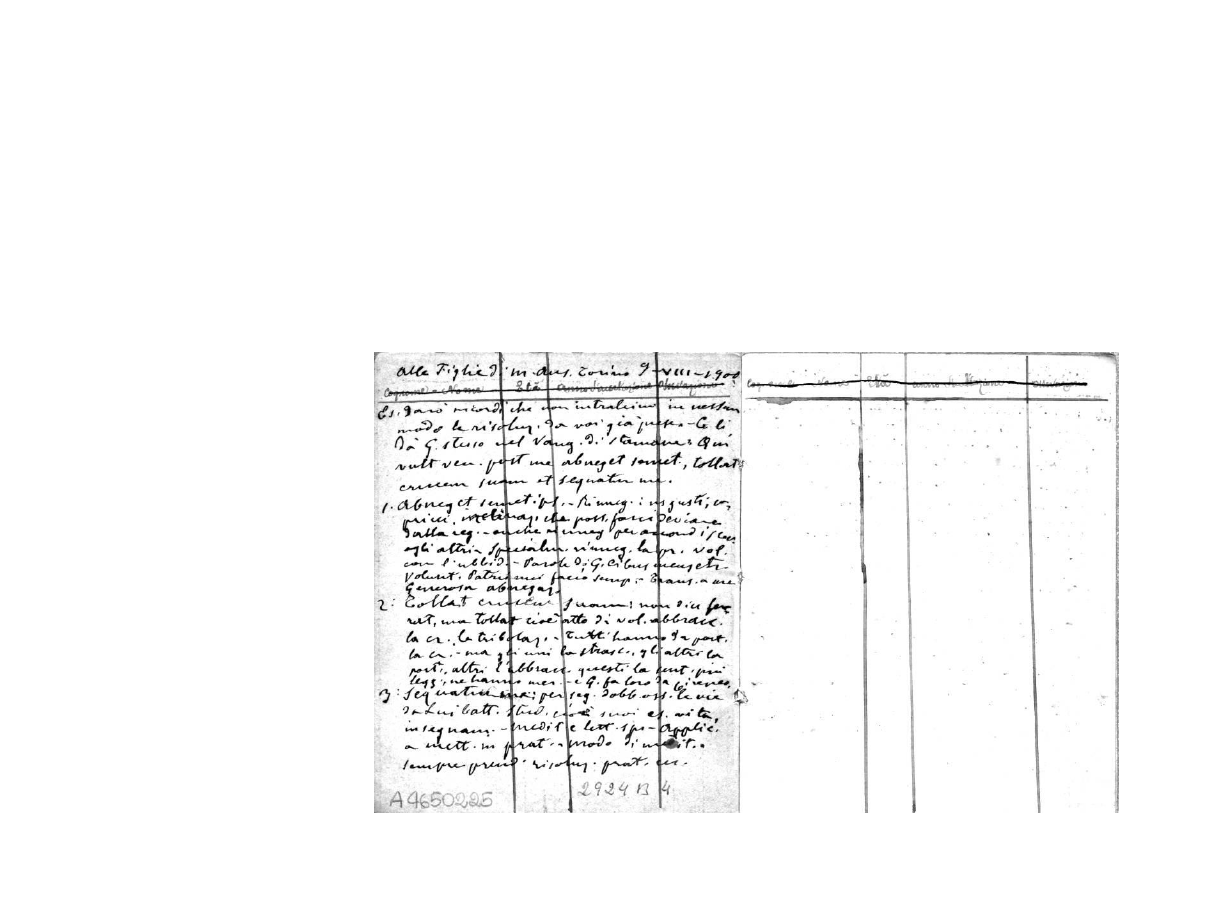 Alle Figlie di M. Aus. Torino 9-VIII-1900
Cognome e Nome Età Anno d'accettazione
Es. Darò ricordi che non intralcino in nessun
modo le risoluz. da voi già prese - Ce li
dà G. stesso nel Vang. di stamane: Qui
vult ven. post me abneget semet., tollat
crucem suam et sequatur me.
1. Abneget semetips. - Rinneg. i ns gusti, ca
pricci, inclinaz. che poss. farci deviare
dalla reg. - anche per
agli altri - specialm. rinneg. la pr. vol.
con l'ubbid. - Parole di G. Cibus meus etc
Volunt. Patris mei facio semp. - a me
Generosa abnegaz.
2: Tollat crucem suam: non dice fe
rat, ma tollat cioè atto di vol. abbracc.
la cr. le tribolaz. - Tutti hanno da port.
la cr. - ma gli uni la strasc., gli altri la
port., altri l'abbracc. questi la sent. più
legg., ne hanno mer. - e G. fa loro da cireneo.
3: Sequatur me: per seg. dobb. oss. le vie
da Lui batt. Stud. cioè suoi es. vita,
insegnam. - Medit e lett. sp. - Applic.
a mett. in prat. - modo di
sempre prend. risoluz. prat. ecc.
A4650225
2924 B 4
Età